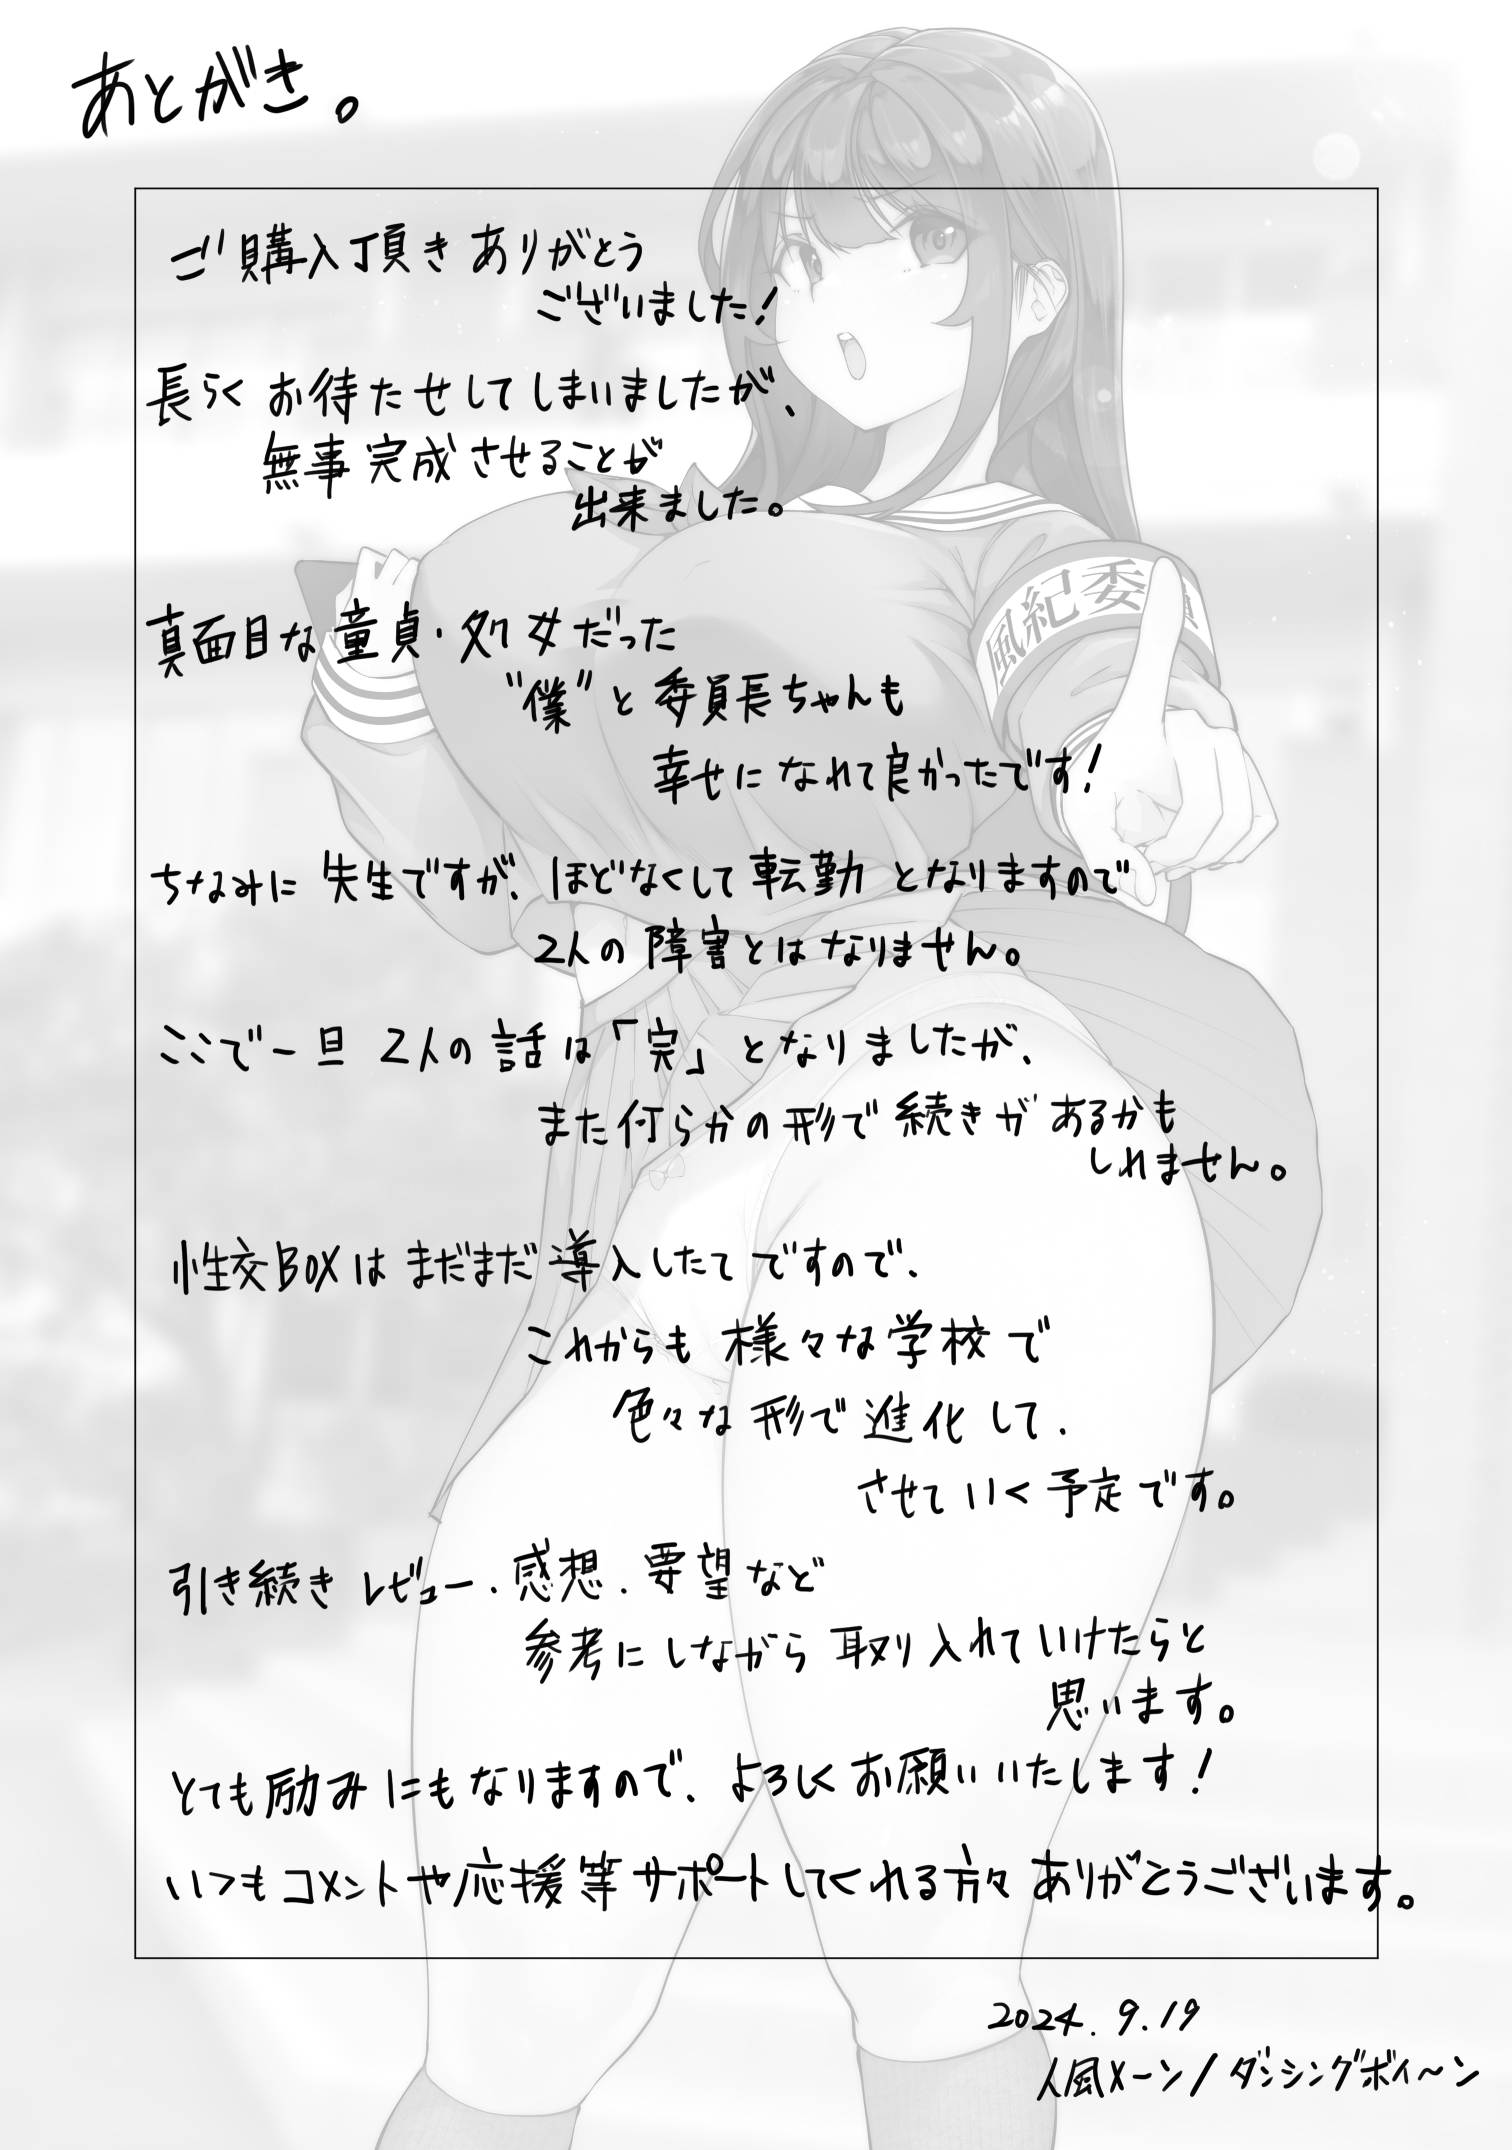 あとがき。
ご購入頂きありがとう
ございました!
長らくお待たせしてしまいましたが、
無事完成させることが
出来ました。
風紀委員
真面目な童貞・処女だった
"僕"と委員長ちゃんも
幸せになれて良かったです!
ちなみに先生ですが、ほどなくして転勤となりますので
2人の障害とはなりません。
ここで一旦2人の話は「完」となりましたが、
また何らかの形で続きがあるかも
しれません。
性交BOXはまだまだ導入したてですので、
これからも様々な学校で
色々な形で進化して、
させていく予定です。
引き続きレビュー、感想、要望など
参考にしながら取り入れていけたらと
思います。
とても励みにもなりますので、よろしくお願いいたします!
いつもコメントや応援等サポートしてくれる方々ありがとうございます。
2024.9.19
人風メーン/ダンシングボイ〜ン